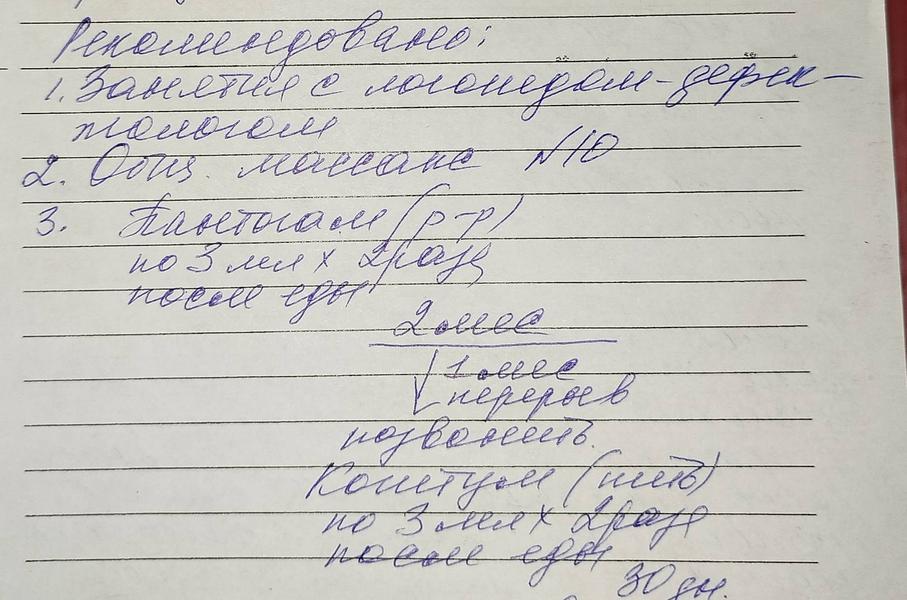 Рекомендовано:
1. Занятия с логопедом-дефек-
тологом
2. Общ. массаж №10
3. Пантогам (р-р)
по 3 мл х 2 раза
после еды
2 мес
1 мес
перерыв
позвонить.
Когитум (пить)
по 3 мл х 2 раза
после еды
30 дн.